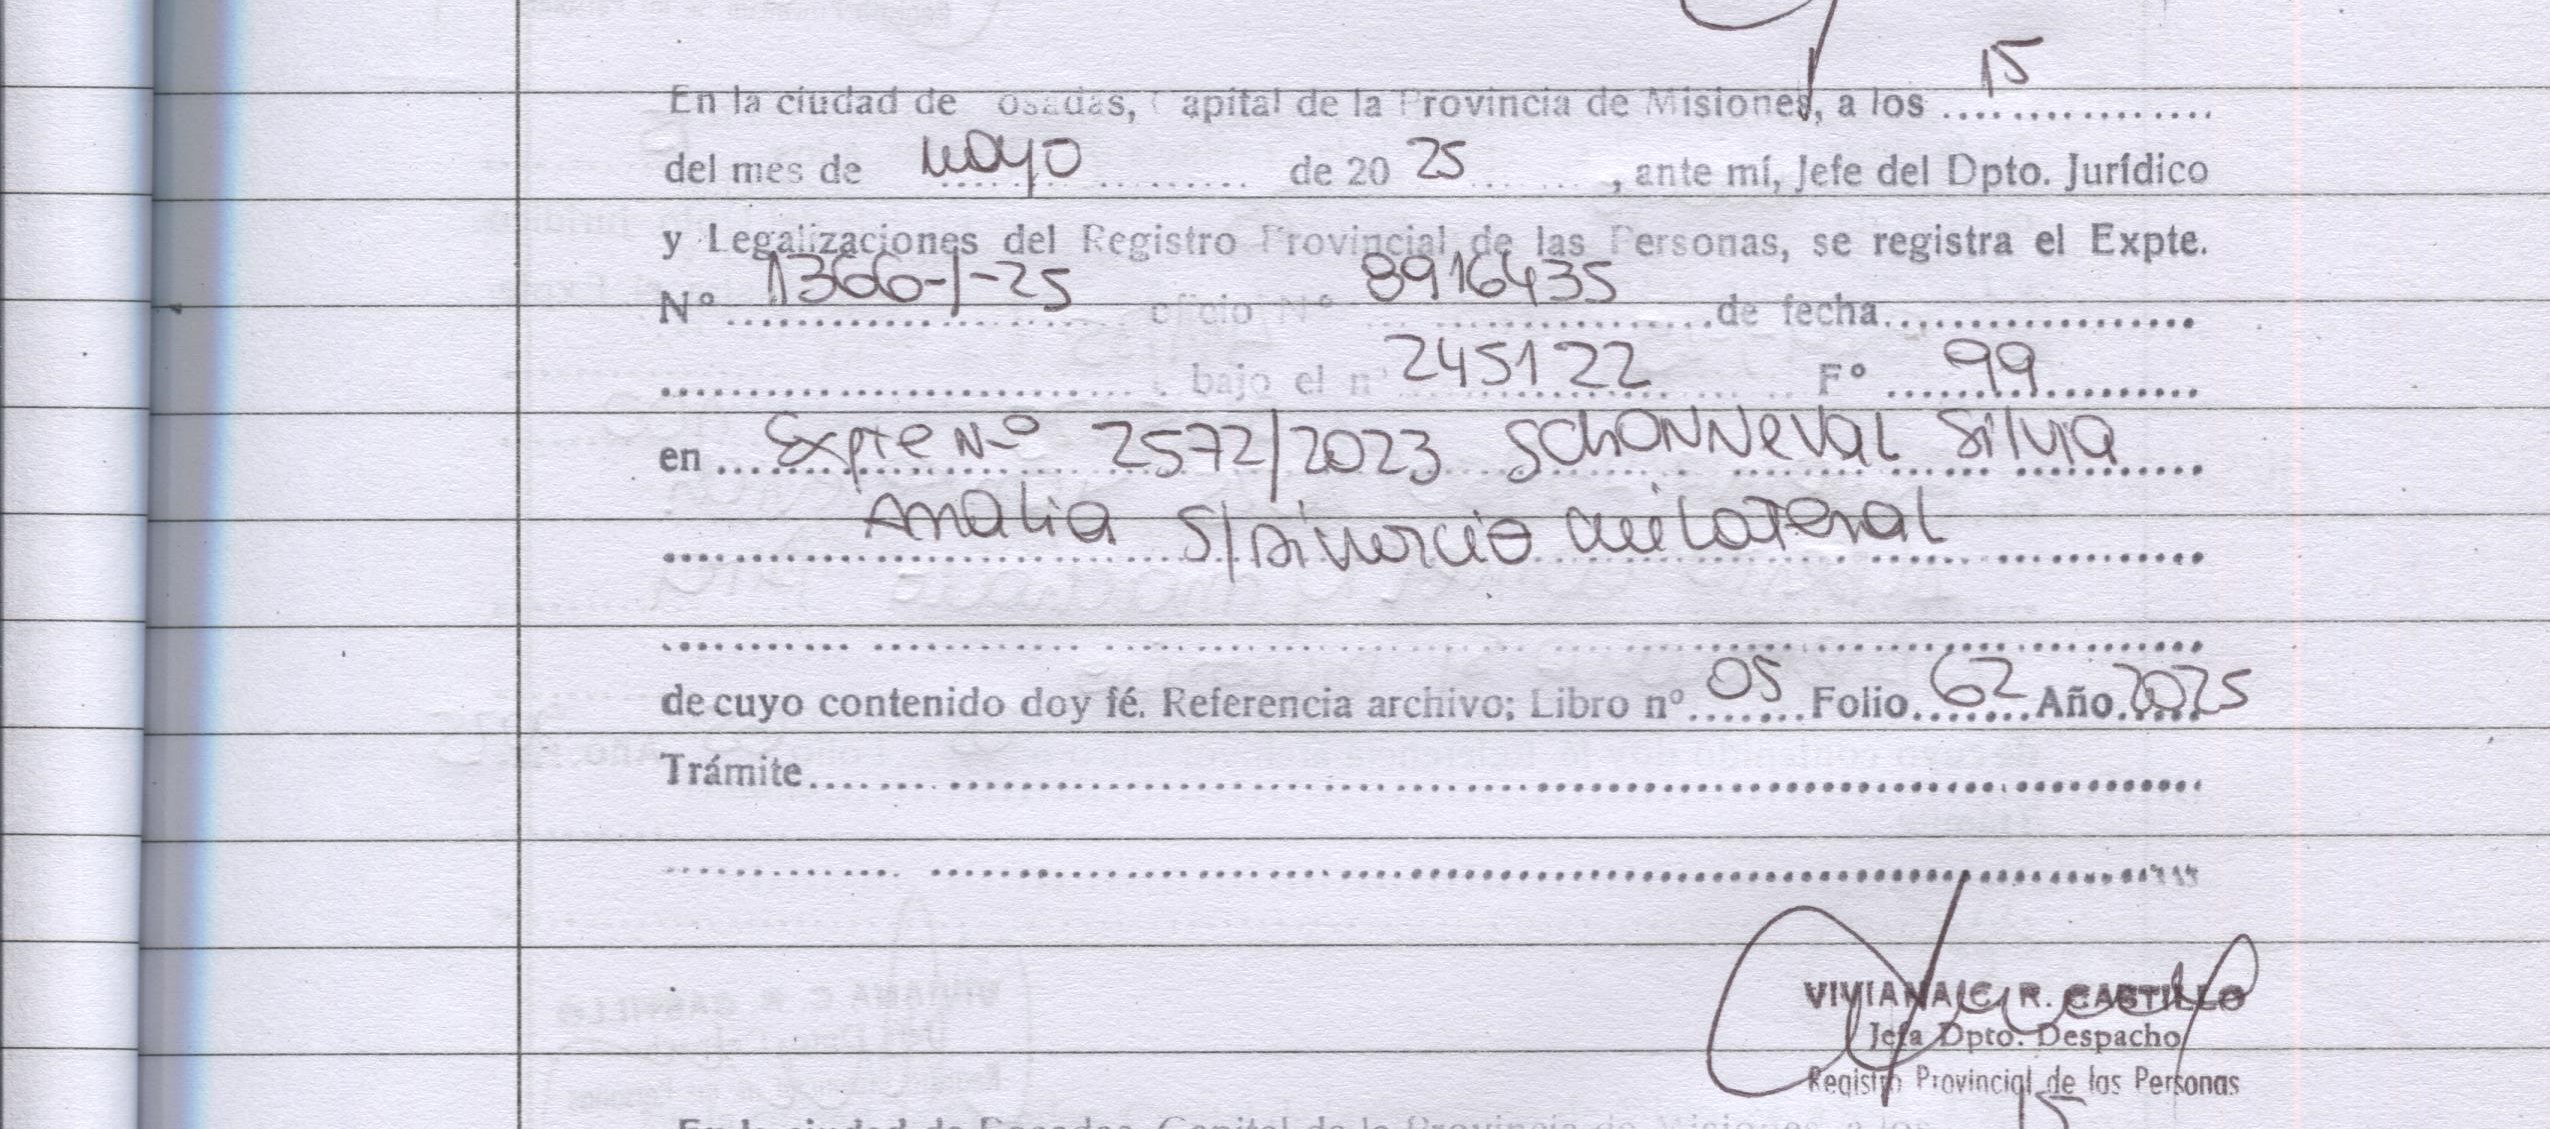 En la ciudad de osadas, Capital de la Provincia de Misiones, a los 15
del mes de mayo de 20 25 , ante mí, Jefe del Dpto. Jurídico
y Legalizaciones del Registro Provincial de las Personas, se registra el Expte.
N° 1366-1-25 oficio N° 8916435 de fecha
bajo el n° 245122 F° 99
en Expte Nº 2572/2023 SchONNeVal Silvia
Amalia S/Divorcio unilateral
de cuyo contenido doy fé. Referencia archivo; Libro nº 05 Folio 62 Año 2025
Trámite
VIVIANA C. R. CASTILLO
Jefa Dpto. Despacho
Registro Provincial de las Personas
15
En la ciudad de Posadas, Capital de la Provincia de Misiones, a los